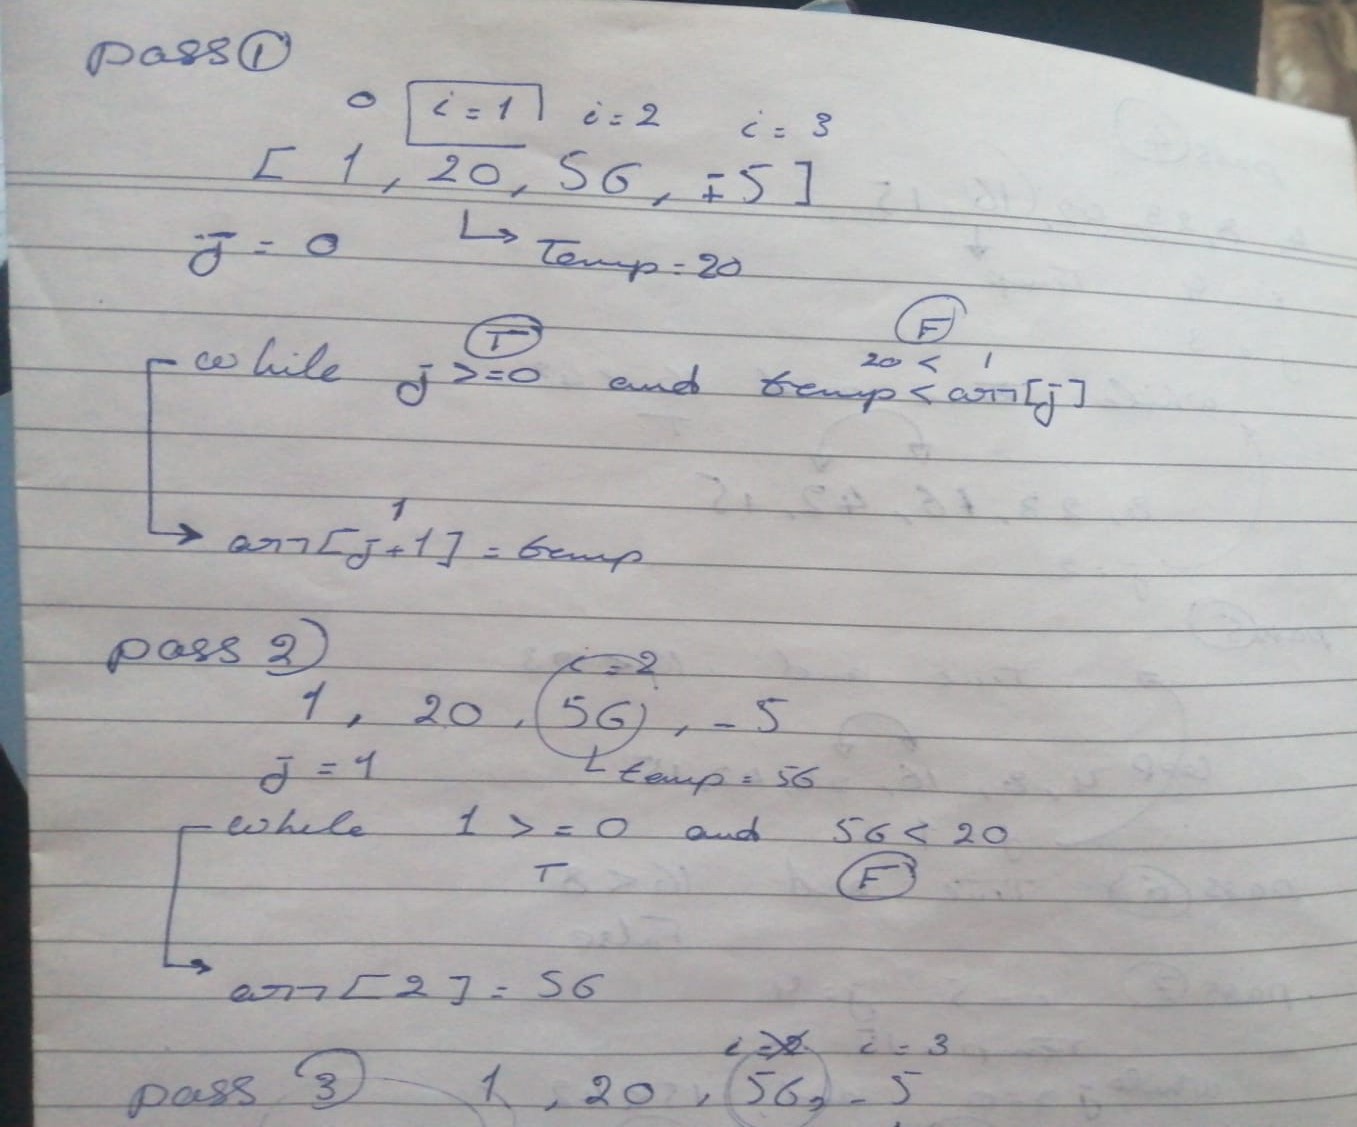 pass 1
0 i=1 i=2 i=3
[ 1, 20, 56, -5 ]
j = 0 Temp=20
T F
20 < 1
while j >=0 and temp < arr[j]
1
arr[j+1] = temp
pass 2)
i=2
1, 20, 56, -5
j = 1 temp= 56
while 1 >= 0 and 56 < 20
T F
arr[2] = 56
i=2 i=3
pass 3 1, 20, 56, -5